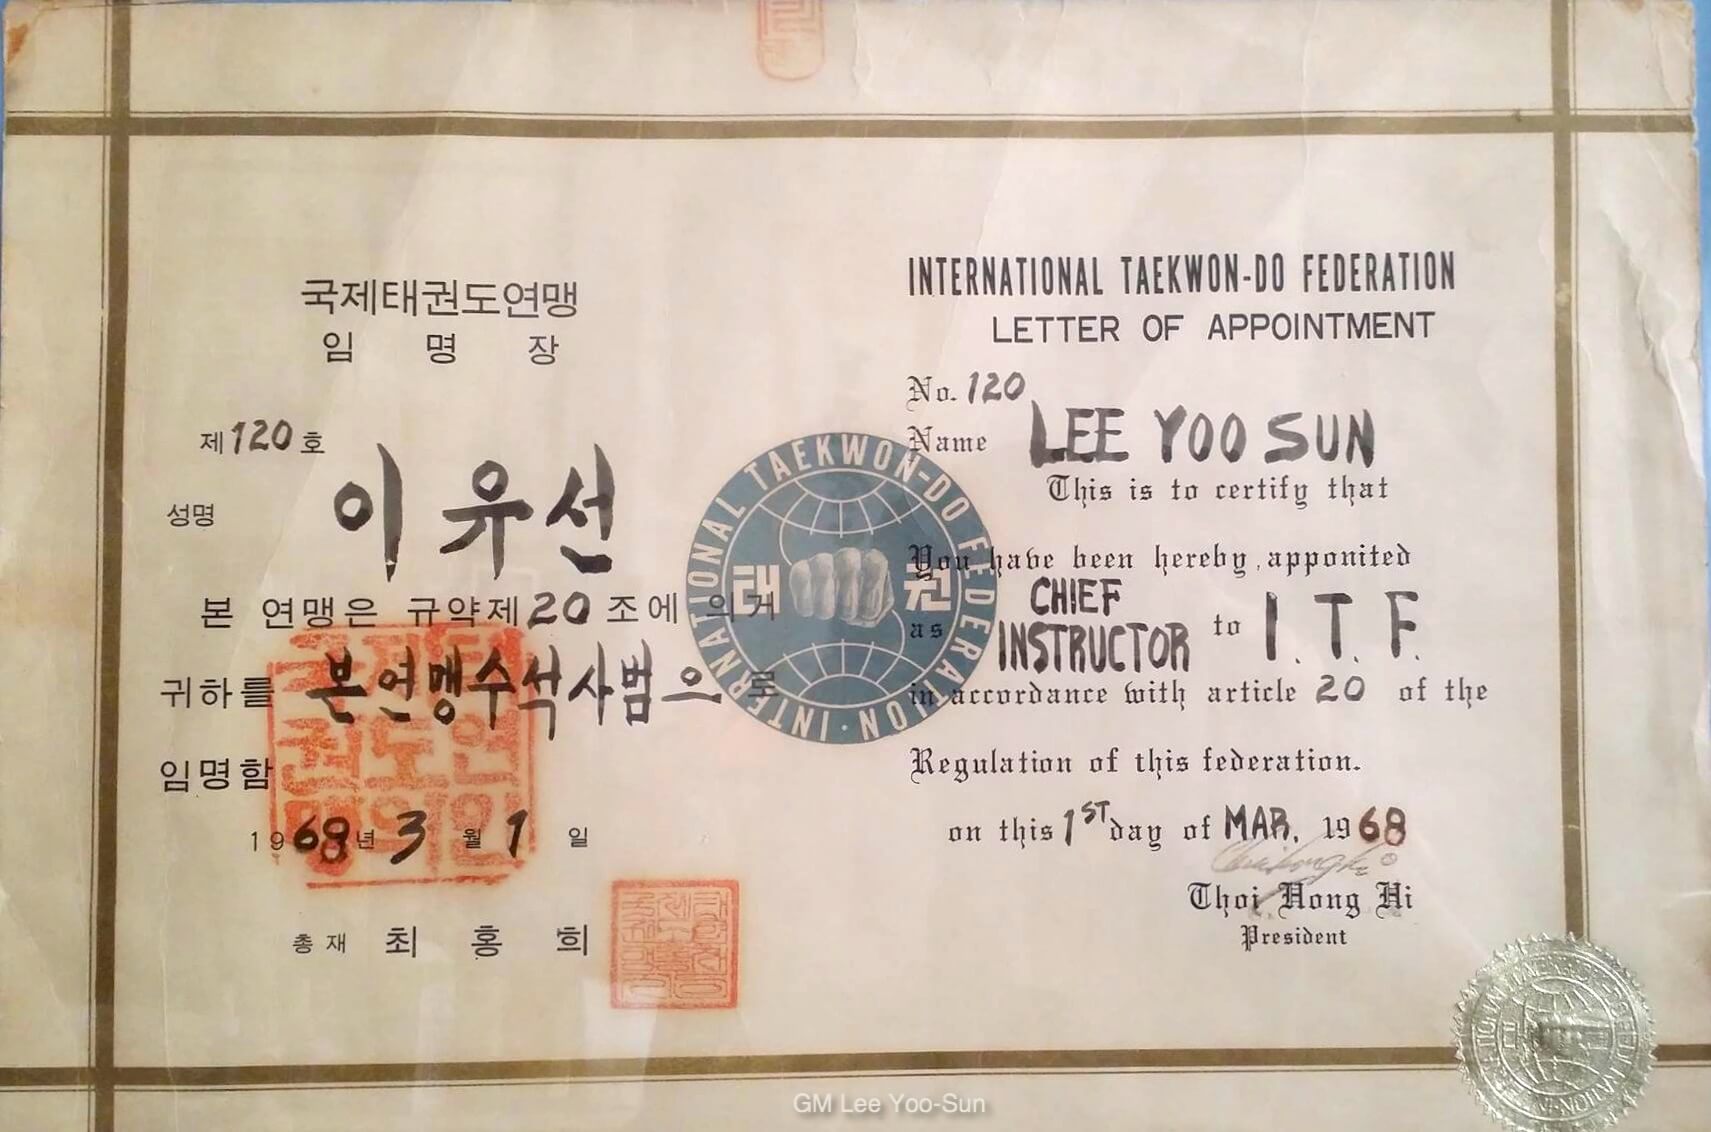 국제태권도연맹
임 명 장
제 120 호
성명 이 유 선
본 연맹은 규약제 20 조에 의거
귀하를 본연맹수석사범으로
임명함
1968년 3 월 1 일
총재 최 홍 희
INTERNATIONAL TAEKWON-DO FEDERATION
LETTER OF APPOINTMENT
No. 120
Name LEE YOO SUN
This is to certify that
You have been hereby, apponited
as CHIEF INSTRUCTOR to I. T. F.
in accordance with article 20 of the
Regulation of this federation.
on this 1ST day of MAR, 1968
Choi Hong Hi
President
INTERNATIONAL TAEKWON-DO FEDERATION
태 권
GM Lee Yoo-Sun